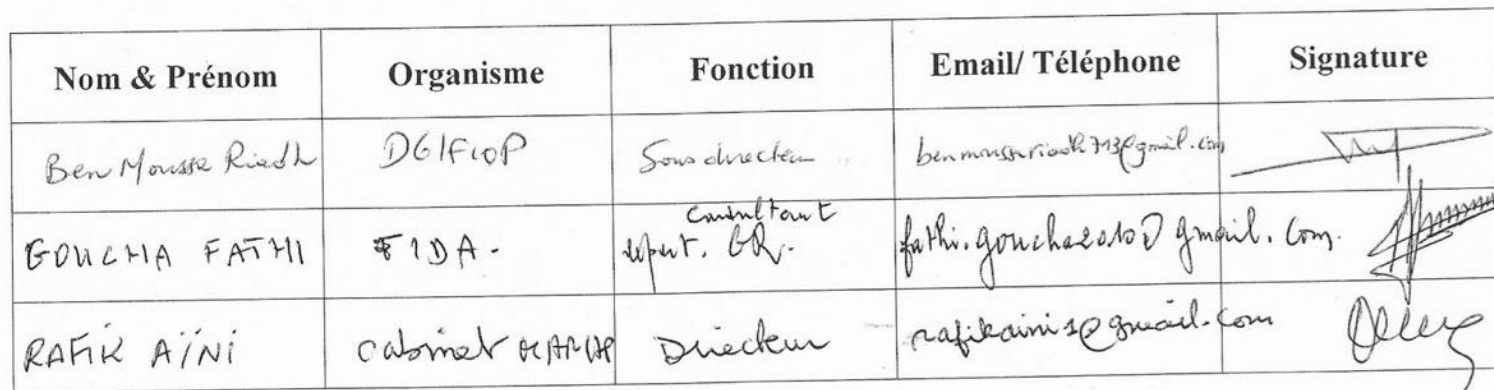 Nom & Prénom Organisme Fonction Email/ Téléphone Signature
Ben Mousse Riadh DGIFIOP Sous directeur @gmail.com
GOUCHA FATHI FIDA. consultant expert. GR. fathi.goucha2010@gmail.com.
RAFIK AÏNI Cabinet Directeur rafikaini1@gmail.com